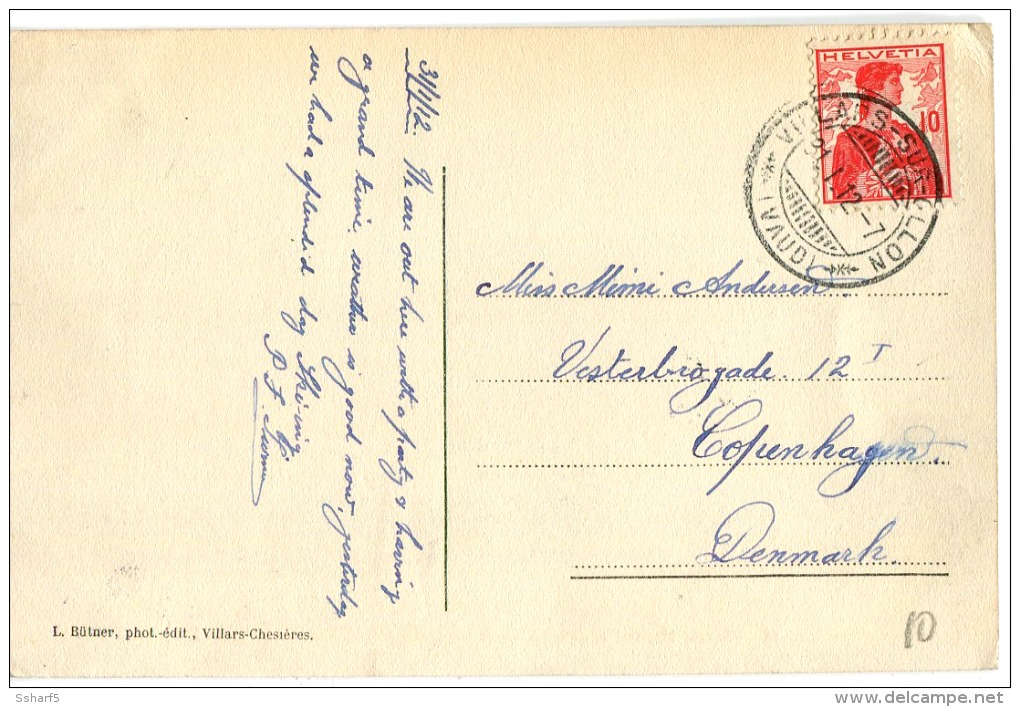 31/1/12. We are out here with a party & having
a grand time, weather is good now, yesterday
we had a splendid day Ski-ing
HELVETIA
10
VILLARS-SUR-OLLON
31.I.12-7
(VAUD)
Miss Mimi Andersen.
Vesterbrogade. 12 I
Copenhagen.
Denmark.
L. Bütner, phot.-édit., Villars-Chesières.
10
Ssharf5
www.delcampe.net